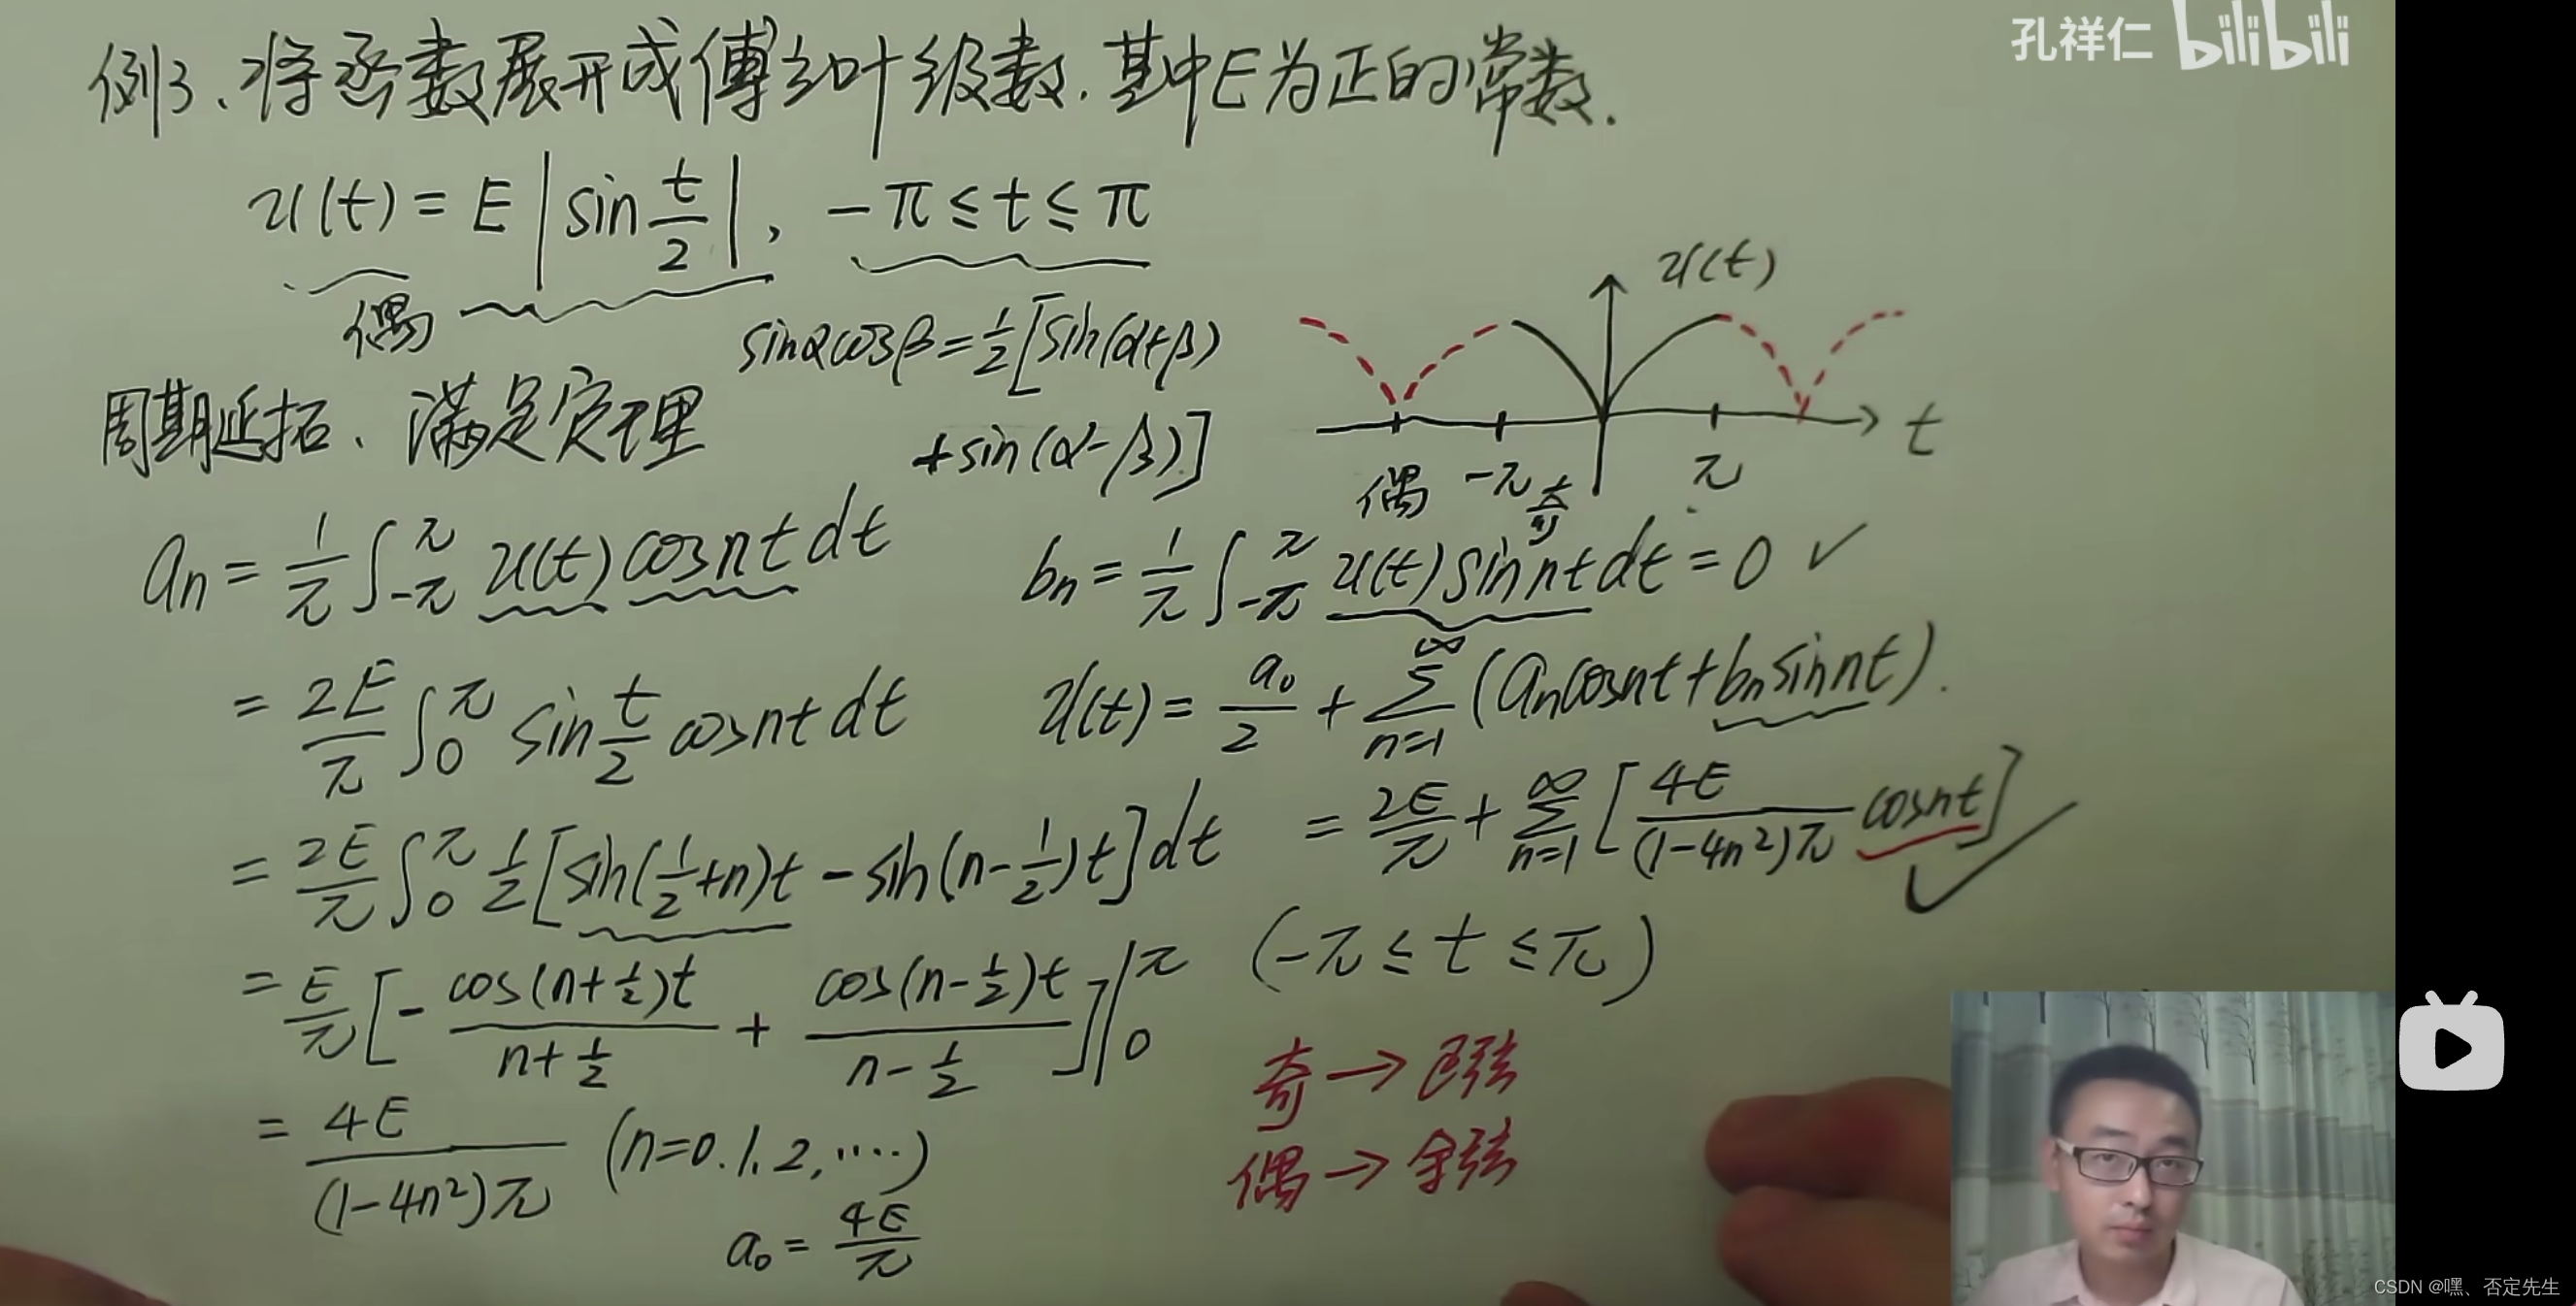 孔祥仁 bilibili
例3、将函数展开成傅立叶级数.其中E为正的常数.
u(t) = E|sin t/2|, -π ≤ t ≤ π
偶
sinαcosβ = 1/2[sin(α+β)
+sin(α-β)]
u(t)
t
-π
π
周期延拓、满足定理
an = 1/π ∫_{-π}^{π} u(t) cosnt dt
= 2E/π ∫_0^π sin t/2 cosnt dt
= 2E/π ∫_0^π 1/2[sin(1/2+n)t - sin(n-1/2)t]dt
= E/π [- cos(n+1/2)t/(n+1/2) + cos(n-1/2)t/(n-1/2)]|_0^π
= 4E/((1-4n²)π) (n=0.1.2,·····)
a₀ = 4E/π
偶 奇
bn = 1/π ∫_{-π}^{π} u(t) sin nt dt = 0 ✓
u(t) = a₀/2 + ∑_{n=1}^∞ (an cosnt + bn sinnt).
= 2E/π + ∑_{n=1}^∞ [4E/((1-4n²)π) cosnt] ✓
(-π ≤ t ≤ π)
奇 → 正弦
偶 → 余弦
CSDN @嘿、否定先生